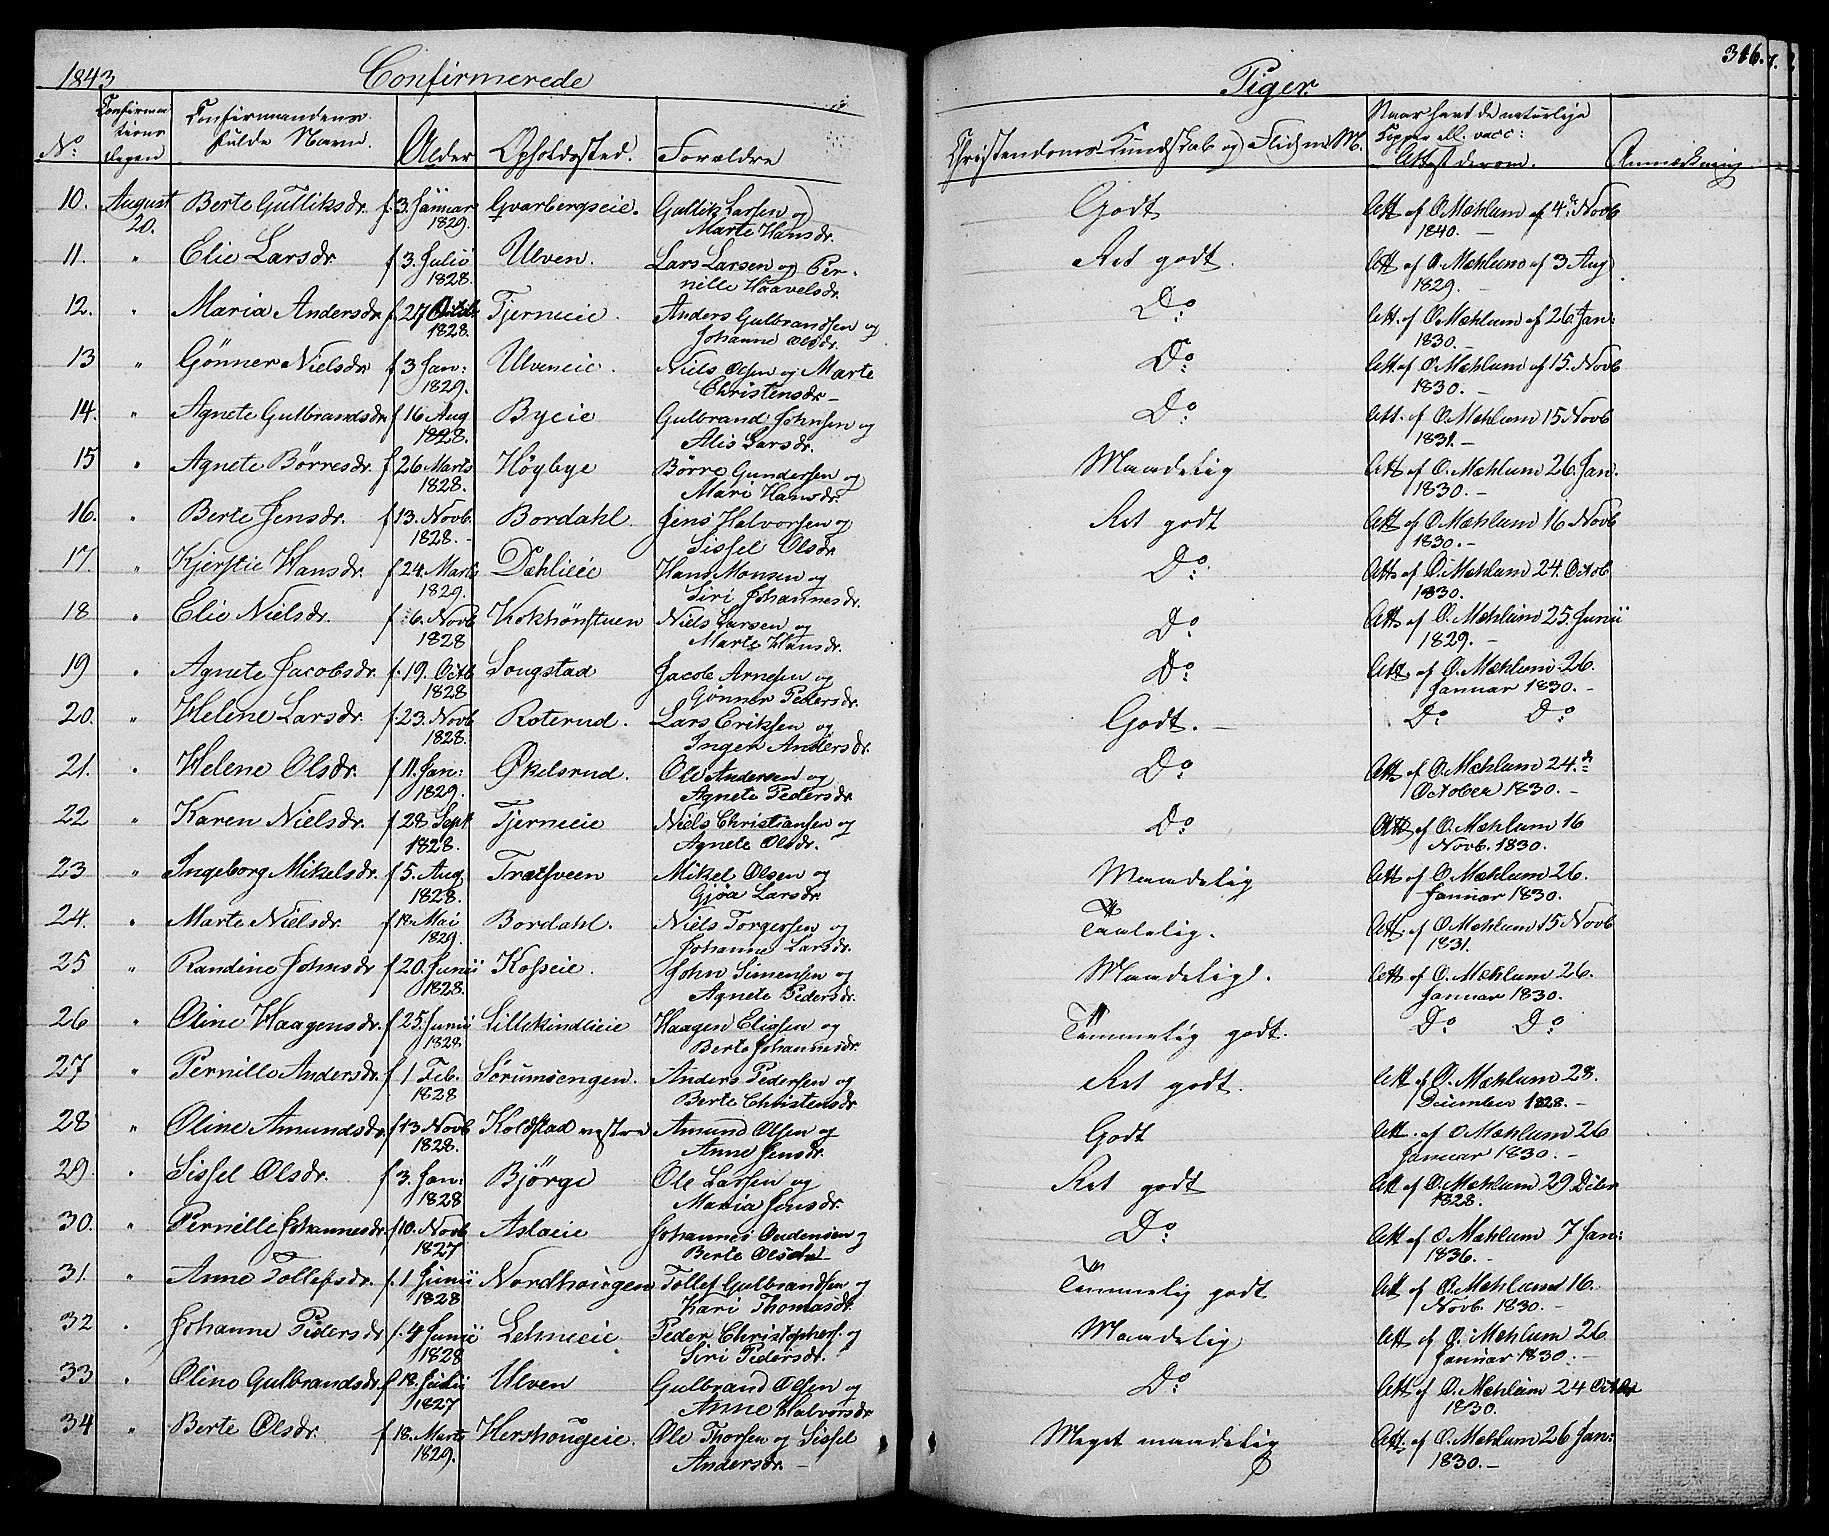 1843 Confirmerede Piger. 316.
No. Confirmationsdagen Confirmandens fulde Navn. Alder Opholdssted. Forældre Christendoms-Kundskab og Flid m M. Naar havt de naturlige Kopper ell. vacc: Attest derom. Anmærkning
10. August 20. Berte Gulliksdr. f. 3. Januar 1829. Gvarbergseie. Gullik Larsen og Marte Hansdr. Godt Att af O Mæhlum af 4de Novb 1840. —
11. " Elie Larsdr. f 3. Julii 1828. Ulven. Lars Larsen og Pernille Haavelsdr. Ret godt. Att af O Mæhlum af 3 Aug 1829. —
12. " Maria Andersdr. f. 27 1828. Tjerneie. Anders Gulbrandsen og Johanne Olsdr. Do Att. af O Mæhlum af 26. Jan: 1830. —
13 " Gönner Nielsdr. f 3 Jan: 1829. Ulveneie. Niels Olsen og Marte Christensdr — Do Att. af O Mæhlum af 15. Novb 1830. —
14. " Agnete Gulbrandsdr. f 16 Aug 1828. Byeie Gulbrand Johnsen og Alis Larsdr. Do Att. af O. Mæhlum 15 Novb 1831. —
15 " Agnete Börresdr. f 26 Marts 1828. Höybye Börre Gundersen og Mari Hansdr. Maadelig Att af O. Mæhlum 26. Jan. 1830. —
16. " Berte Jensdr. f 13. Novb. 1828. — Bordahl. Jens Halvorsen og Sissel Olsdr. Ret godt Att af O Mæhlum 16 Novb 1830. —
17. " Kjerstie Hansdr. f 24. Marts 1829. Dæhlieie Hans Monsen og Siri Johannesdr. Do. Att af O. Mæhlum 24. Octob 1830.
18 " Elie Nielsdr. f. 6. Novb 1828 Kokhönstuen Niels Larsen og Marte Hansdr. Do Att af O. Mæhlum 25. Junii 1829. —
19 " Agnete Jacobsdr. f. 19. Octb 1828 Songstad Jacob Arnesen og Gjönner Pedersdr. Do Att. af O. Mæhlum 26. Januar 1830. —
20. " Helene Larsdr. f. 23. Novb 1828. Roterud. Lars Eriksen og Inger Andersdr. Godt. — Do Do
21. " Helene Olsdr. f 11. Jan: 1829. Økelsrud. Ole Andersen og Agnete Pedersdr. Do Att af O. Mæhlum 24.de October 1830. —
22 " Karen Nielsdr. f 28 Sept 1828. Tjerneie Niels Christiansen og Agnete Olsdr. Do Att af O. Mæhlum 16 Novb. 1830.
23 " Ingeborg Mikelsdr. f 5. Aug 1828. Trætsveen Mikel Olsen og Gjöa Larsdr. Maadelig Att af O. Mæhlum 26. Januar 1830.
24. " Marte Nielsdr. f 18. Mai 1829. Bordahl. Niels Torgersen og Johanne Larsdr. Taalelig. Att. af O. Mæhlum 15 Novb 1831.
25 " Randine Johnsdr f 20. Junii 1828. Kosseie. John Simensen og Agnete Pedersdr. Maadelig. Att af O. Mæhlum 26. Januar 1830.
26 " Oline Haagensdr. f 25. Junii 1828 Lillekindlieie Haagen Eliasen og Berte Johannesdr. Temmelig godt. Do Do
27 " Pernille Andersdr. f 1 Feb. 1828 Sörumsengen. Anders Pedersen og Berte Christensdr Ret godt. Att af O. Mæhlum 28. December 1828. —
28 " Oline Amundsdr. f 13 Novb 1828. Koldstad vestre Amund Olsen og Anne Jensdr. Godt Att. af O Mæhlum 26 Januar 1830. —
29. " Sissel Olsdr. f 3. Jan: 1828 Björge Ole Larsen og Maria Jensdr. Ret godt Att af O. Mæhlum 29 Dcbr 1828.
30. " Pernille Johannesdr. f 10. Novb 1827 Aslaeie Johannes Oudensen og Berte Olsdr Do Att af O Mæhlum 7 Jan: 1836. —
31. " Anne Tollefsdr. f. 1 Junii 1828 Nordhougen Tollef Gulbrandsen og Kari Thomasdr. Temmelig godt Att af O. Mæhlum 16. Novb. 1830. —
32 " Johanne Pedersdr f. 4 Junii 1828 Lehneeie Peder Christophers. og Siri Pedersdr. Maadelig Att af O. Mæhlum 26 Januar 1830. —
33 " Oline Gulbrandsdr. f 18. Julii 1827 Ulven Gulbrand Olsen og Anne Halvorsdr Do Att af O. Mæhlum 24 October 1830.
34 " Berte Olsdr. f 18. Marts 1829. Hershougeie. Ole Thorsen og Sissel Andersdr. — Meget maadelig Att. af O. Mæhlum 26 Jan: 1830. —